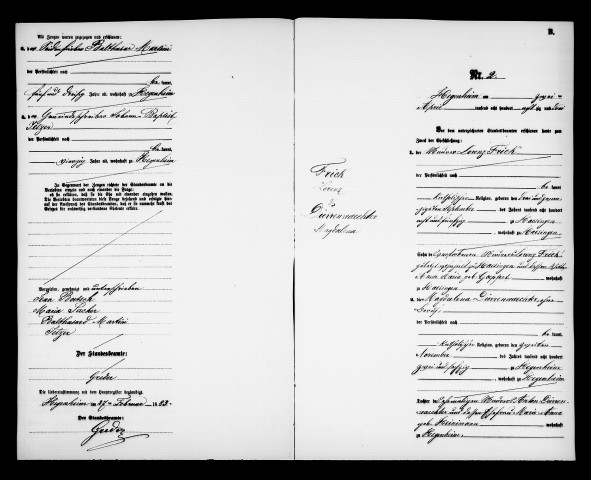 Als Zeugen waren zugezogen und erschienen:
3. der Seidenfärber Balthasar Martin
der Persönlichkeit nach
kannt,
fünf und dreißig Jahre alt, wohnhaft zu Hegenheim
4. der Gemeindeschreiber Johann Baptist
Jelzer
der Persönlichkeit nach
kannt,
vierzig Jahre alt, wohnhaft zu Hegenheim
In Gegenwart der Zeugen richtete der Standesbeamte an
die Verlobten einzeln und nach einander die Frage:
ob sie erklären, daß sie die Ehe mit einander eingehen wollen.
Die Verlobten beantworteten diese Frage bejahend und erfolgte
hierauf der Ausspruch des Standesbeamten, daß er sie nunmehr kraft
des Gesetzes für rechtmäßig verbundene Eheleute erkläre.
Vorgelesen, genehmigt und unterschrieben
Maria Lacher
Balthasard Martin
Jelzer
Der Standesbeamte:
Greder
Die Uebereinstimmung mit dem Hauptregister beglaubigt
Hegenheim am 27ten Februar 1883.
Der Standesbeamte:
Greder
Frick
Lorenz
&
Dürrenwaechter
Magdalena
B.
Nr. 2.
Hegenheim am zwei
April tausend acht hundert acht zig und drei
Vor dem unterzeichneten Standesbeamten erschienen heute zum
Zweck der Eheschließung:
1. der Maurer Lorenz Frick
der Persönlichkeit nach
kannt,
katholischer Religion, geboren den drei und zwan
zigsten des Jahres tausend acht
hundert acht und fünfzig zu Haesingen
, wohnhaft zu Haesingen
Sohn des verstorbenen Maurers Lorenz Frick
zuletzt zu Haesingen und dessen
Anna Maria geb. Goppert
zu Haesingen
2. die Magdalena Dürrenwaechter, ohne
der Persönlichkeit nach
kannt,
katholischer Religion, geboren den zweiten
November des Jahres tausend acht hundert
zwei und sechzig zu Hegenheim
, wohnhaft zu Hegenheim
Tochter des Maurers Anton Dürren-
waechter und dessen Ehefrau Maria Anna
geb. Herrmann
Hegenheim.